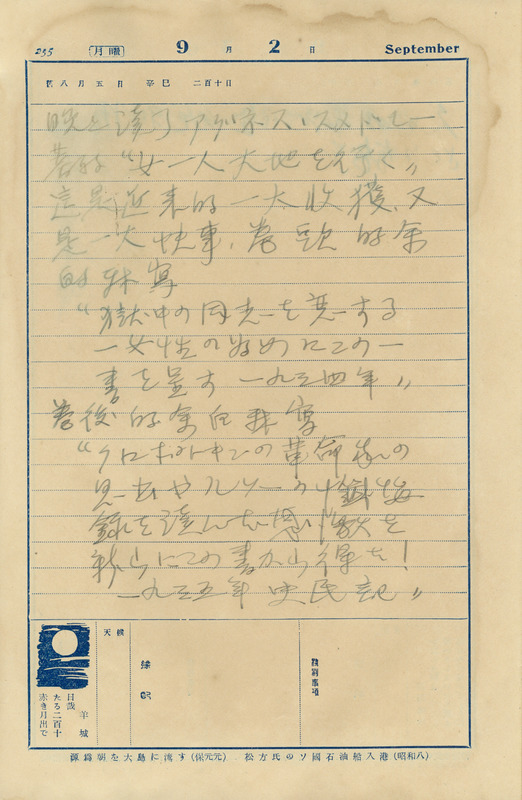 255 月曜 9月2日 September
舊八月五日 辛巳 二百十日
晚上讀了アグネス・スメドレー
著的“女一人大地を行く”
這是近來的一大收獲、又
是一大快事、卷頭的余
的
“獄中の同志を恋する
一女性の為めにこの一
書を呈す 一九三四年”
卷後的余白
“クロポトキンの革命家の
思出やルソーの懺悔
録を読んだ感激を
新らにこの書から得た！
一九三五年 史民記”
天候
羊城
日蝕
たる二百十
赤き月出で
特別事項
源爲朝を大島に流す(保元元) 松方氏のソ國石油船入港(昭和八)